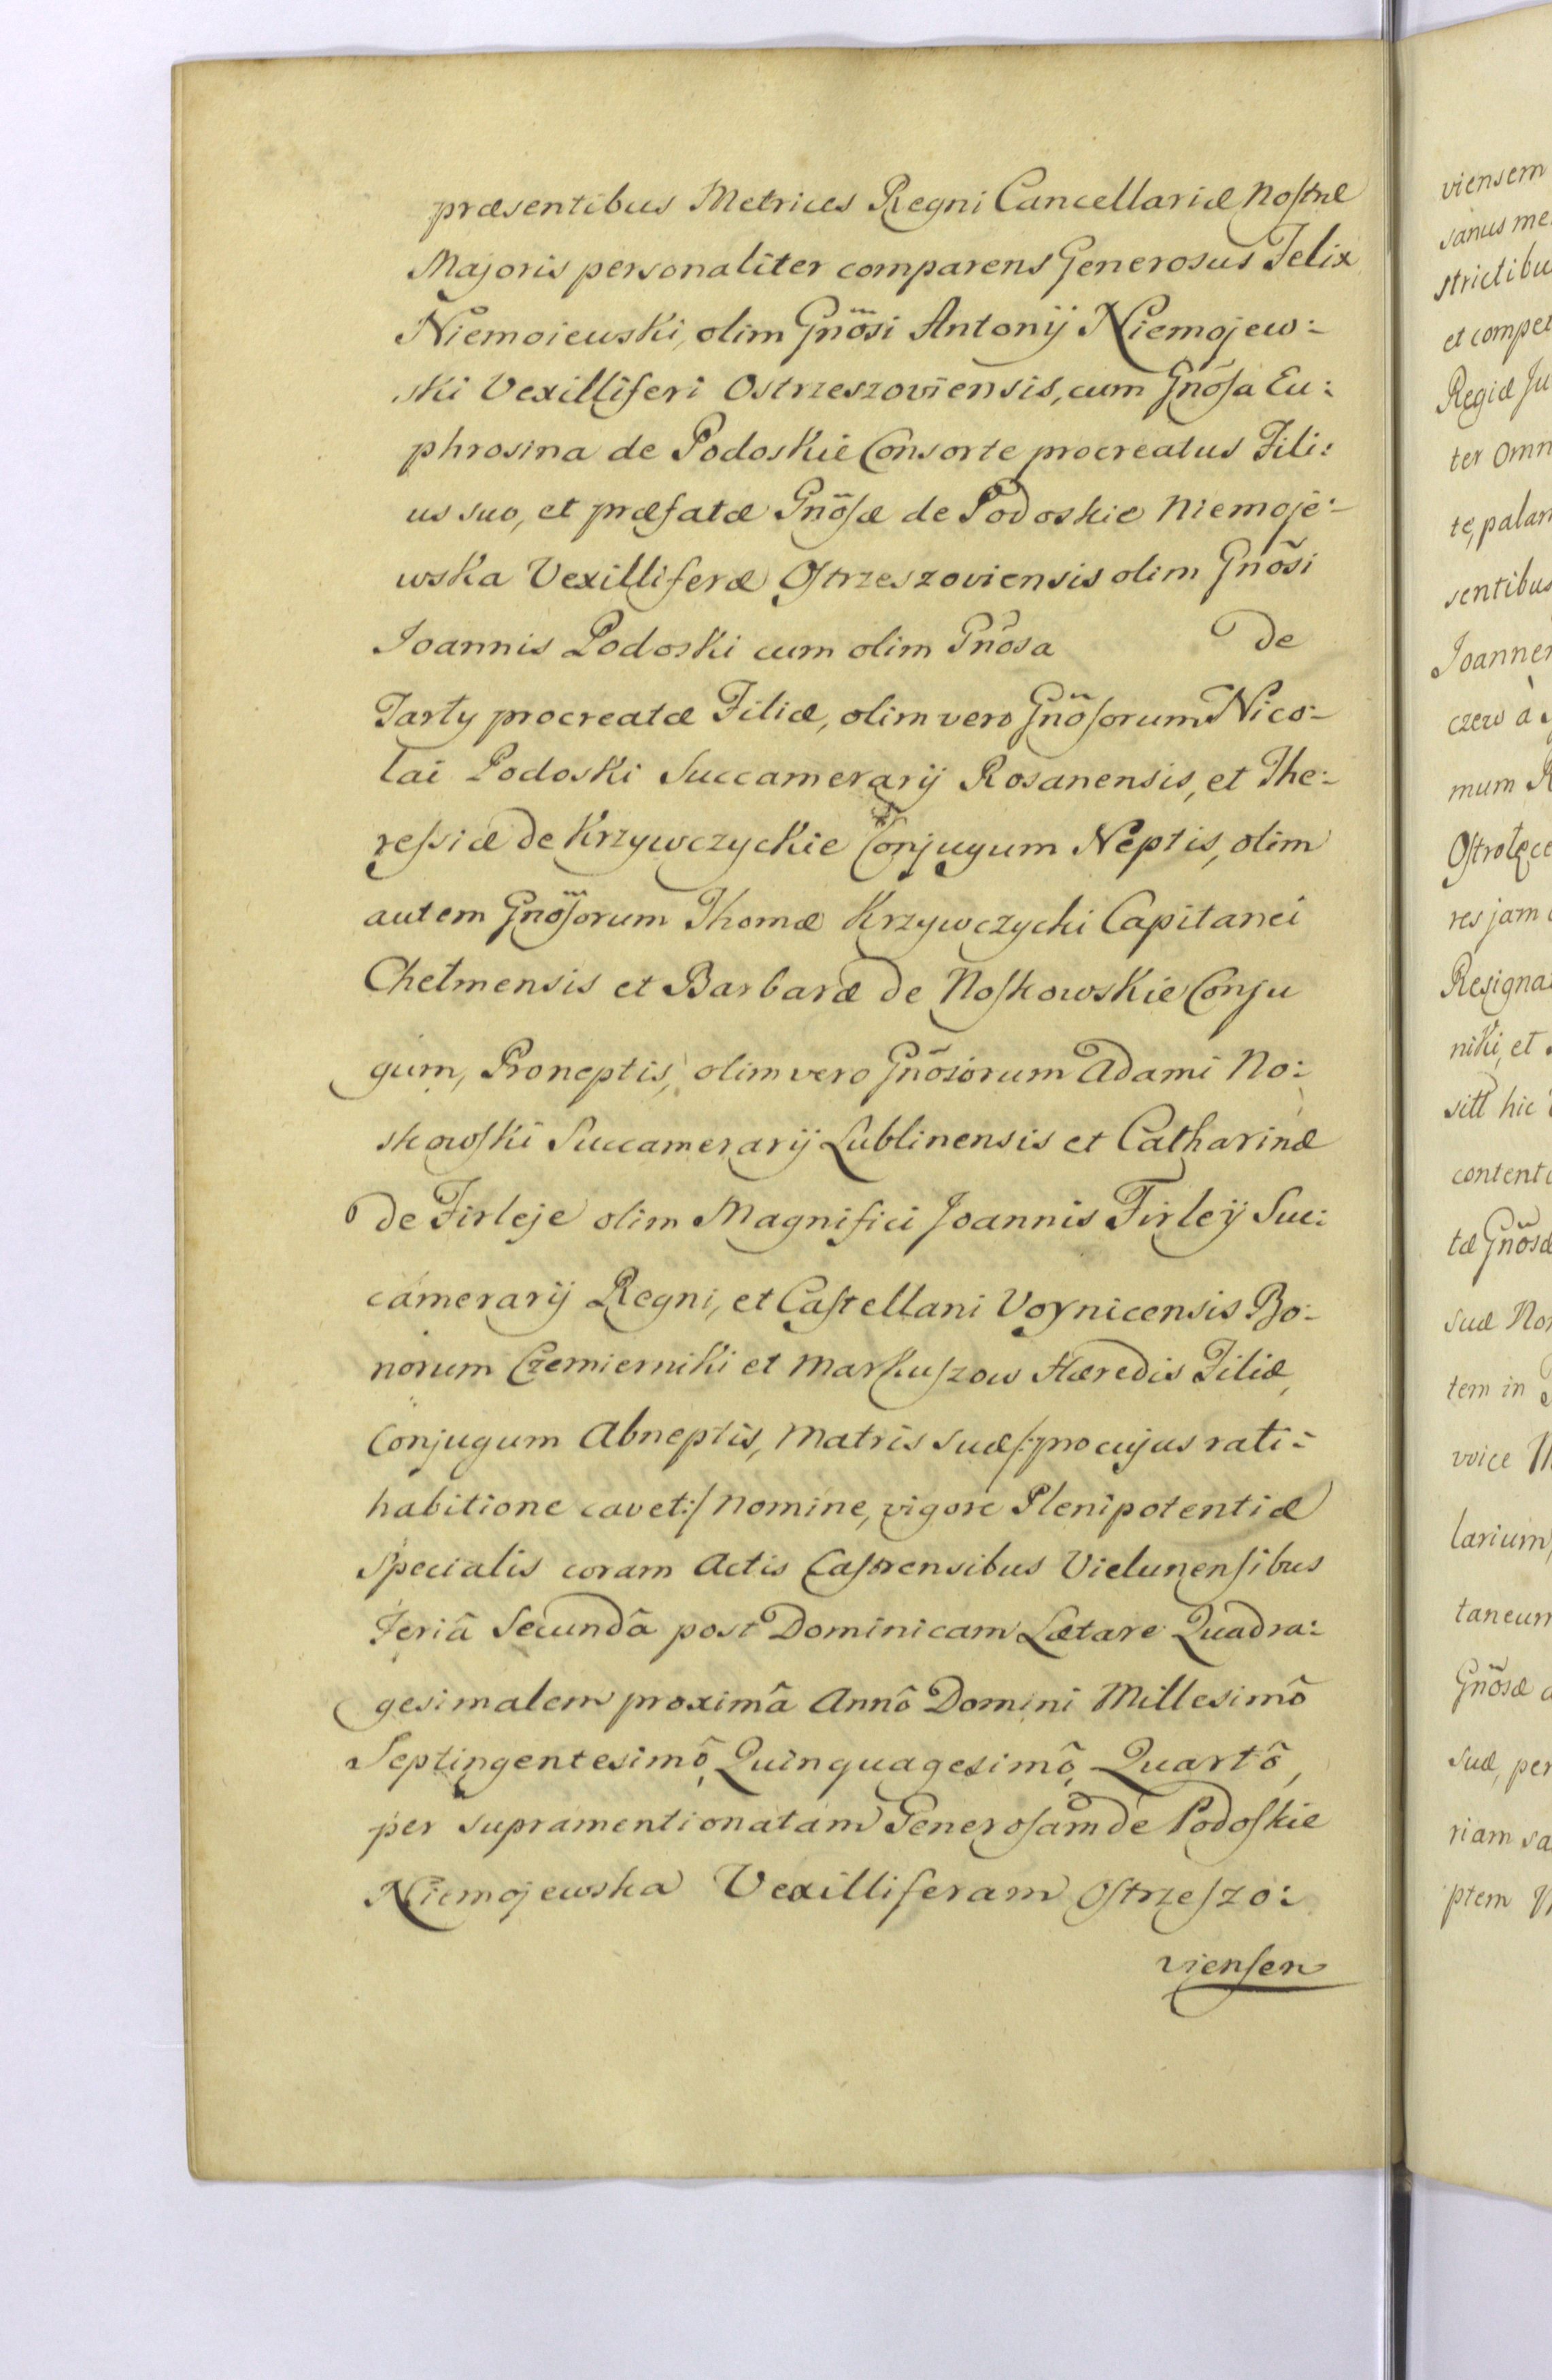 præsentibus Metrices Regni Cancellariæ Nostræ
Majoris personaliter comparens Generosus Felix
Niemoiewski, olim Gnõsi Antonij Niemojew:
ski Vexilliferi Ostrzeszoviensis, cum Gnõsa Eu:
phrosina de Podoskie Consorte procreatus Fili:
us suo, et præfatæ Gnõsæ de Podoskie Niemoje:
wska Vexilliferæ Ostrzeszoviensis olim Gnõsi
Joannis Podoski cum olim Gnõsa de
Tarty procreatæ Filiæ, olim vero Gnõsorum Nico:
lai Podoski Succamerarij Rosanensis, et The:
ressiæ de Krzywczyckie Conjugum Neptis, olim
autem Gnõsorum Thomæ Krzywczycki Capitanei
Chełmensis et Barbaræ de Noskowskie Conju
gum, Proneptis, olim vero Gnõsorum Adami No:
skowski Succamerarij Lublinensis et Catharinæ
de Firleje olim Magnifici Joannis Firleÿ Suc:
camerarij Regni, et Castellani Voynicensis Bo:
norum Czemierniki et Markuszow Hæredis Filiæ,
Conjugum Abneptis, Matris suæ /: pro cujus rati:
habitione cavet :/ Nomine, vigore Plenipotentiæ
Specialis coram Actis Castrensibus Vielunensibus
Feriâ Secundâ post Dominicam Lætare Quadra:
gesimalem proximâ Annô Domini Millesimô
Septingentesimô, Quinquagesimô, Quartô,
per supramentionatam Generosam de Podoskie
Niemojewska Vexilliferam Ostrzeszo:
viensen
viensem
sanus me
strictibu
et compet
Regiæ Ju
ter Omn
te, palam
sentibus
Joannem
czew à
mum R
Ostrołęce
res jam
Resigna
niki, et
sitt hic
content
tæ Gnõsæ
suæ No
tem in
voice
larium,
taneum
Gnõsæ
suæ, per
riam sa
ptem